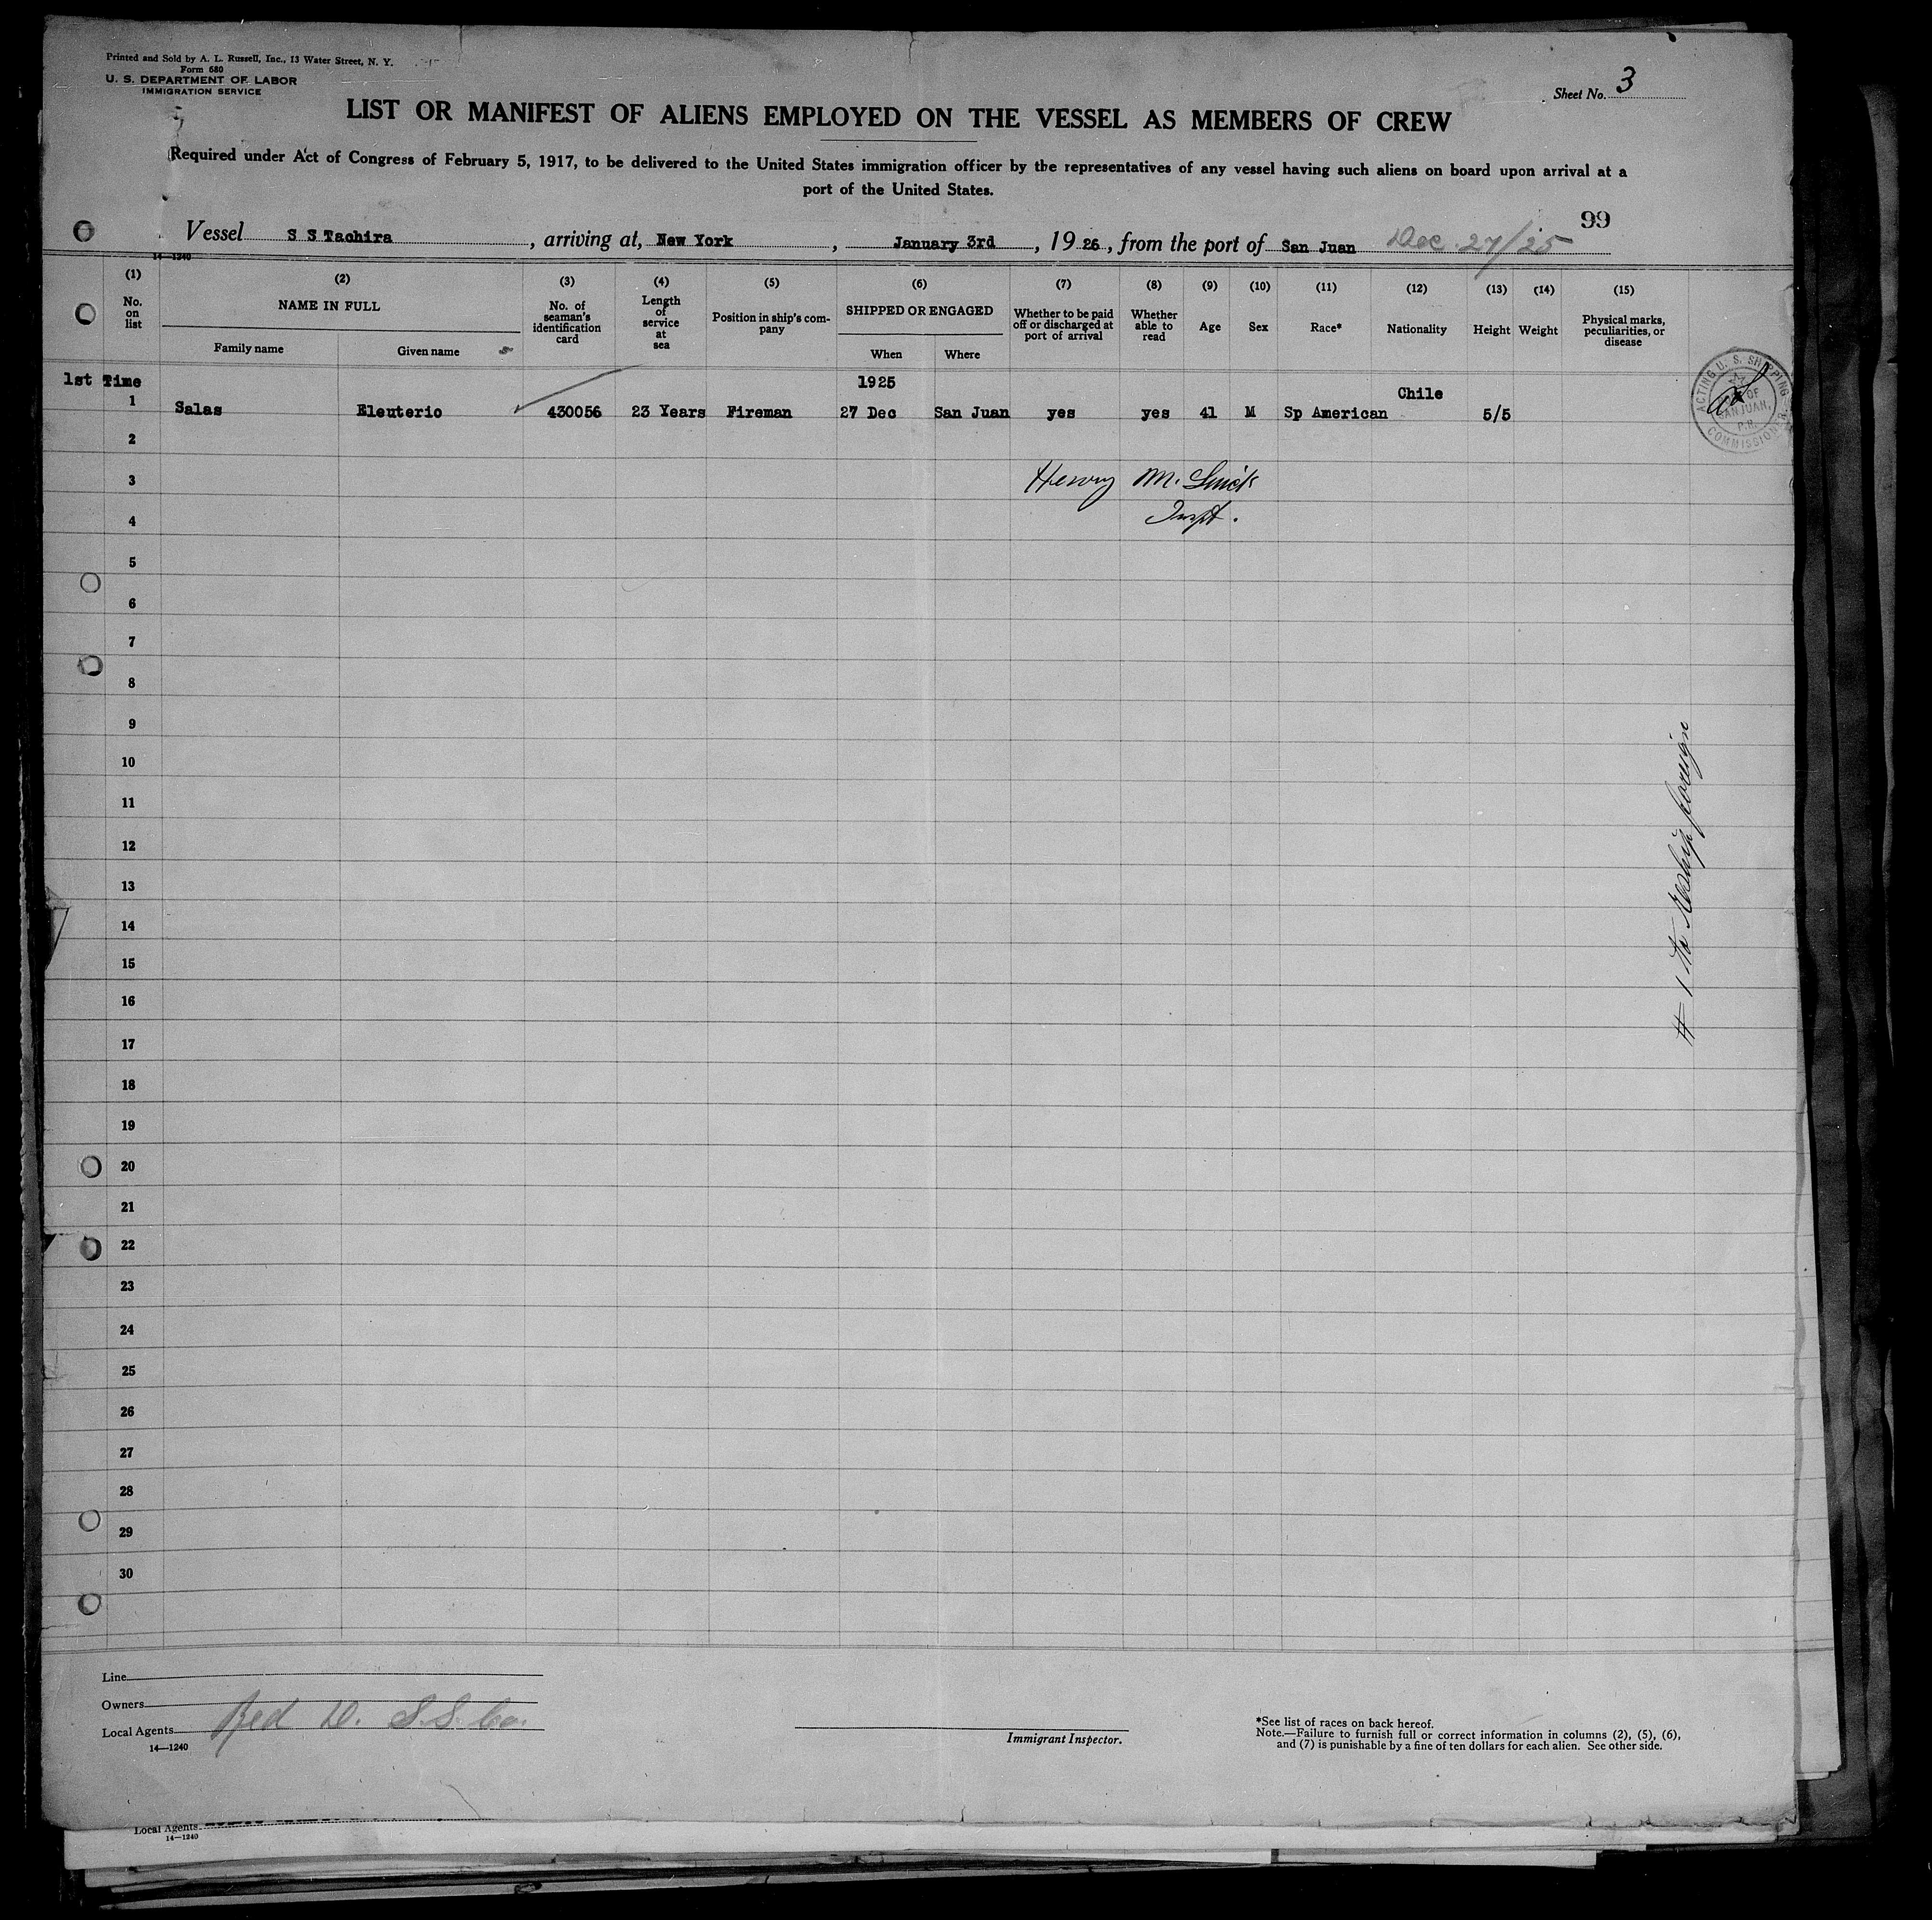 Printed and Sold by A. L. Russell, Inc., 13 Water Street, N. Y.
Form 680
U. S. DEPARTMENT OF LABOR
IMMIGRATION SERVICE
Sheet No. 3
LIST OR MANIFEST OF ALIENS EMPLOYED ON THE VESSEL AS MEMBERS OF CREW
Required under Act of Congress of February 5, 1917, to be delivered to the United States immigration officer by the representatives of any vessel having such aliens on board upon arrival at a
port of the United States.
99
Vessel S S Tachira, arriving at, New York, January 3rd, 1926, from the port of San Juan Dec. 27/25
14—1240
(1) (2) (3) (4) (5) (6) (7) (8) (9) (10) (11) (12) (13) (14) (15)
No. on list
NAME IN FULL
Family name
Given name
No. of seaman's identification card
Length of service at sea
Position in ship's company
SHIPPED OR ENGAGED
When
Where
Whether to be paid off or discharged at port of arrival
Whether able to read
Age
Sex
Race*
Nationality
Height
Weight
Physical marks, peculiarities, or disease
1st Time 1925 Chile
1 Salas Eleuterio 430056 23 Years Fireman 27 Dec San Juan yes yes 41 M Sp American 5/5
ACTING U. S. SHIPPING COMMISSIONER
OF
SAN JUAN,
P.R.
2
3 Henry M.
4 Inspt.
5
6
7
8
9
10
11
12
13
14
15
16
17
18
19
20
21
22
23
24
25
26
27
28
29
30
# 1 to Reship foreign
Line
Owners
Local Agents Red D. S.S. Co.
14—1240
Immigrant Inspector.
*See list of races on back hereof.
Note.—Failure to furnish full or correct information in columns (2), (5), (6),
and (7) is punishable by a fine of ten dollars for each alien. See other side.
Local Agents
14—1240